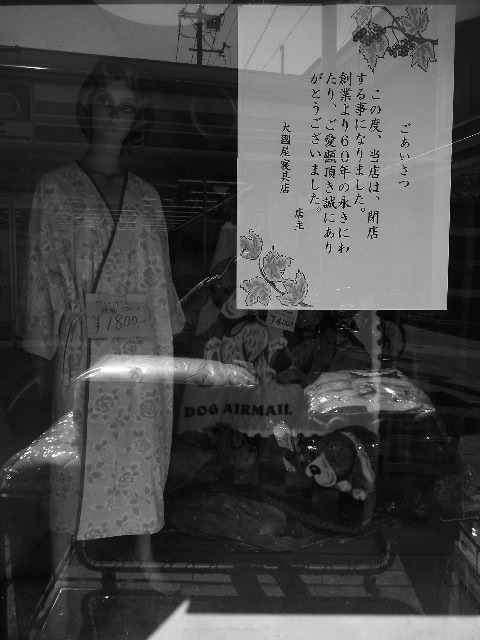 ごあいさつ
この度、当店は、閉店
する事になりました。
創業より60年の永きにわ
たり、ご愛顧頂き誠にあり
がとうございました。
大國屋寝具店
店主
¥1800,-
¥4000
DOG AIRMAIL